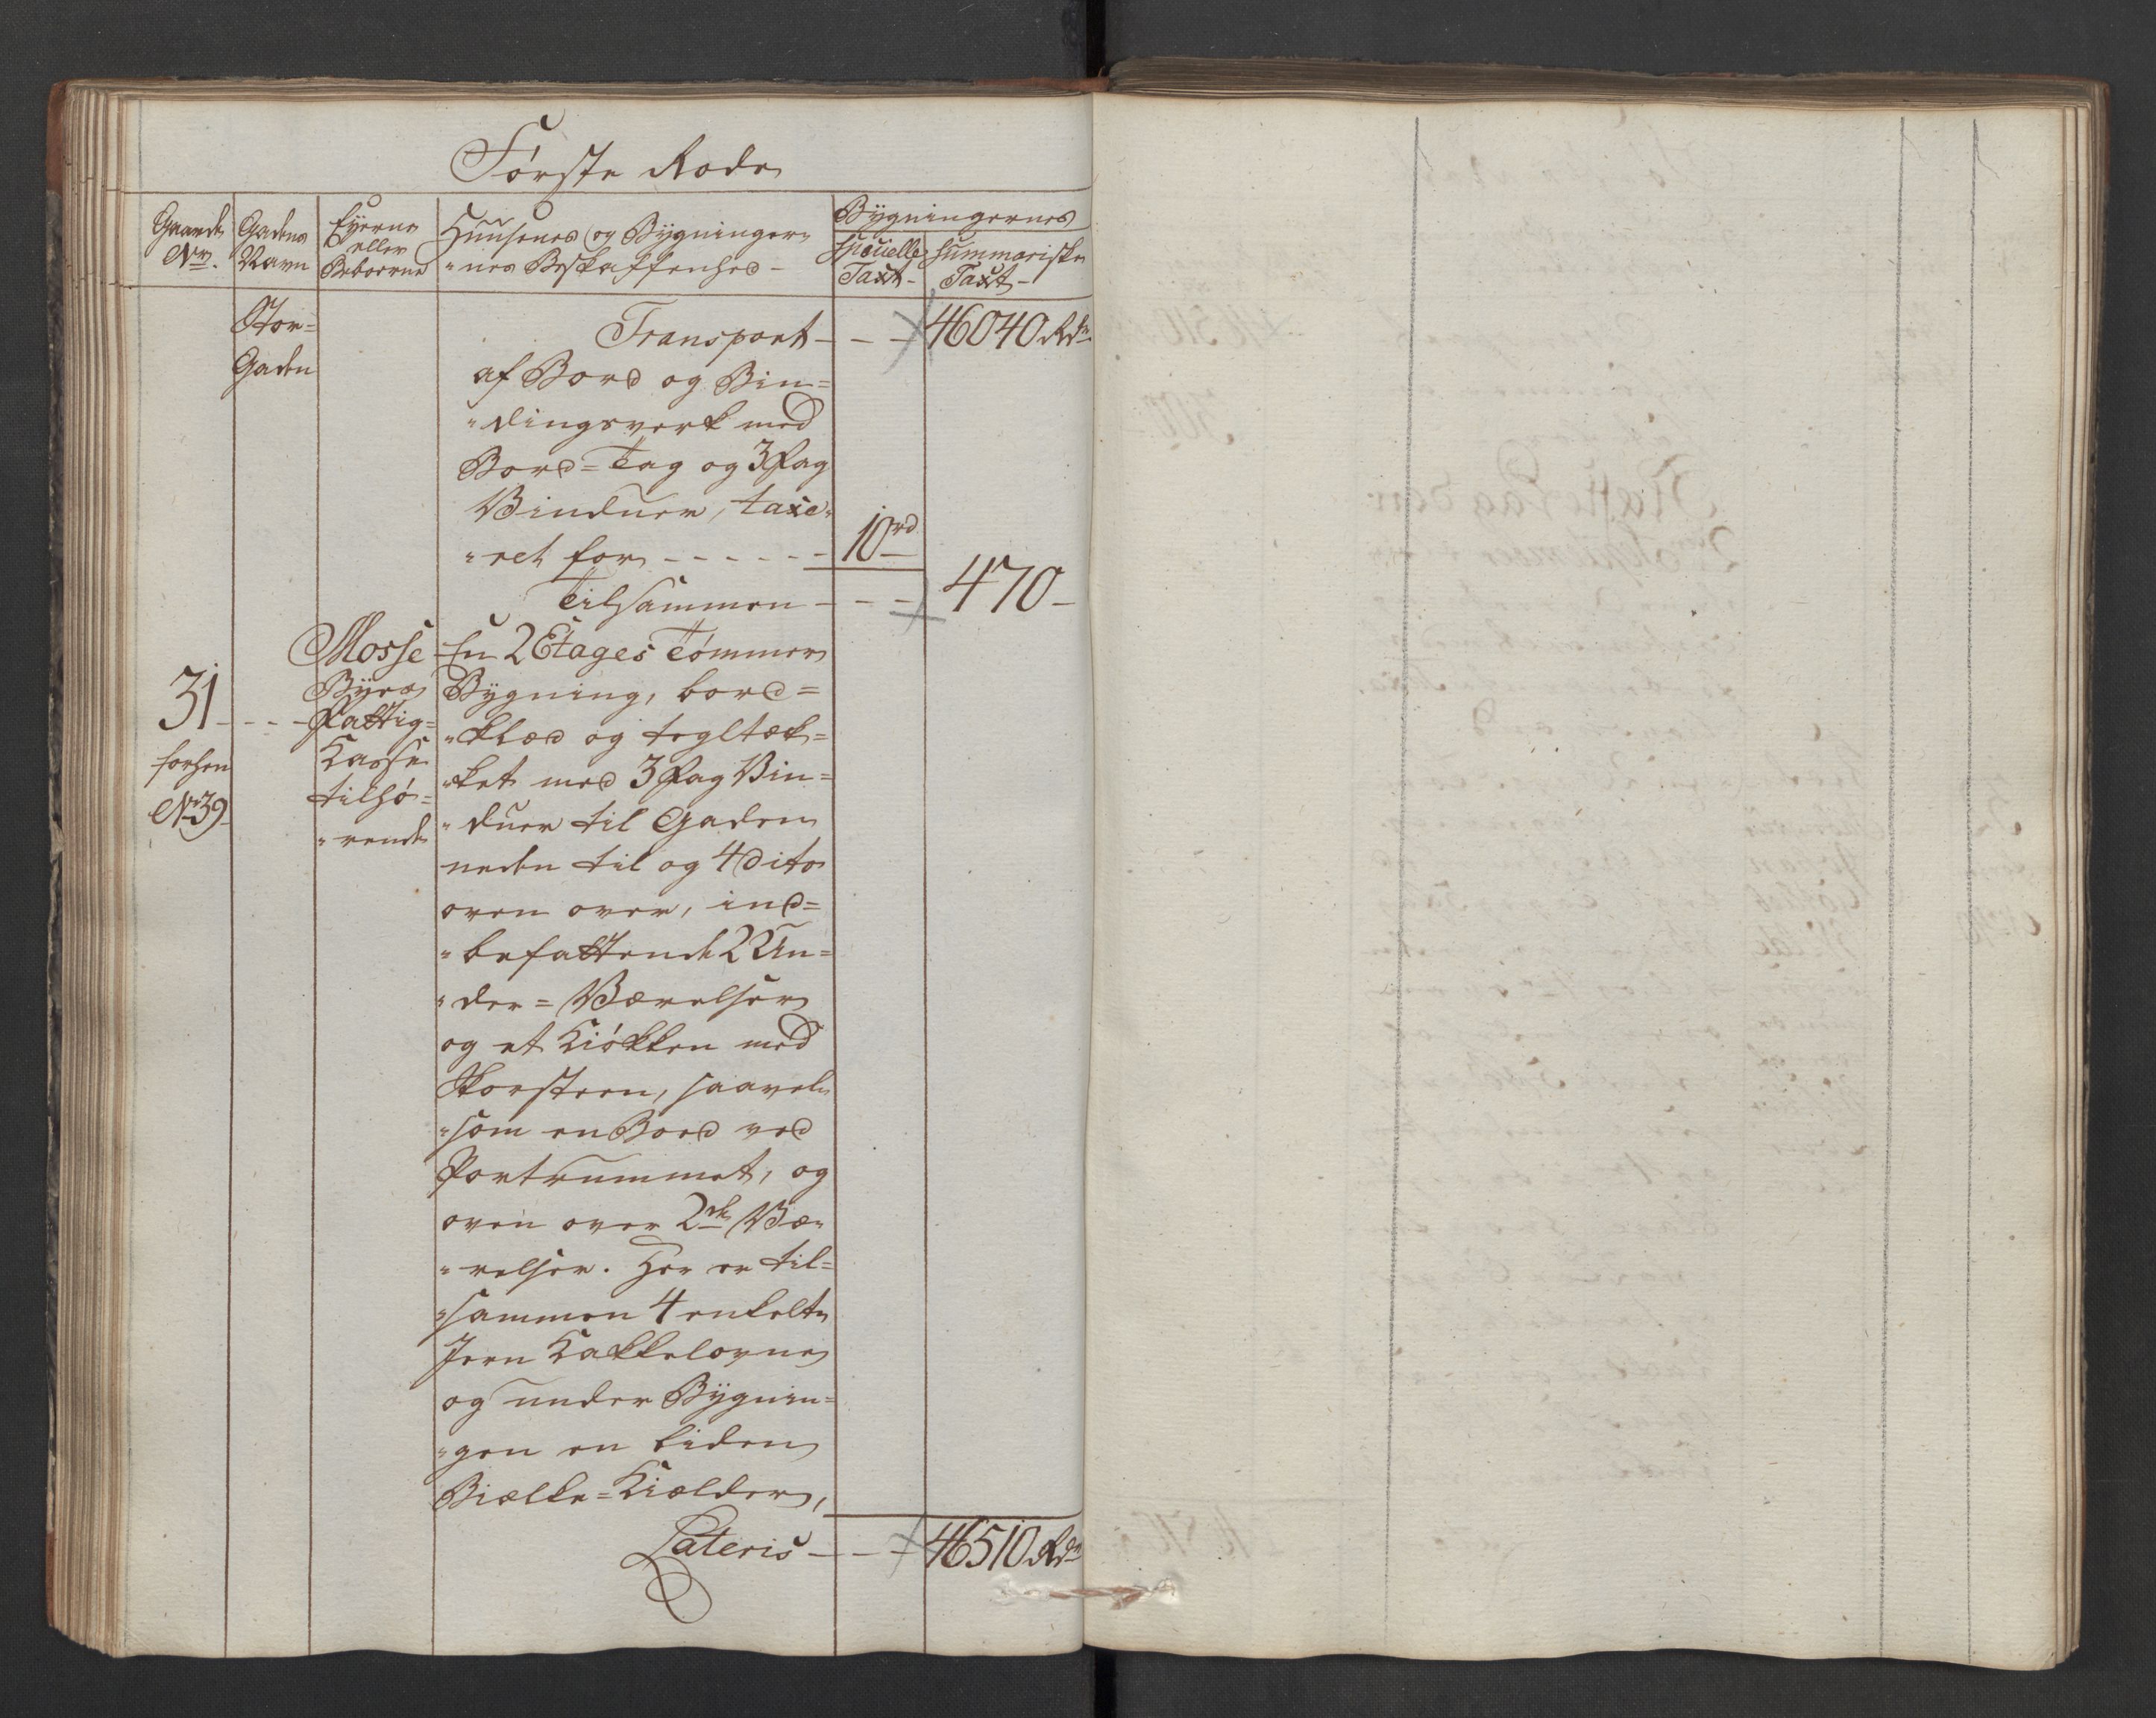 Første Rode
Gaards Nr. Gadens Navn Eyerne eller Beboerne Huusenes og Bygninger= =nes Beskaffenhed - Bygningernes Specielle Taxt - Summariske Taxt -
Stor=
Gaden
Transport - - - 46040 Rdr
af Bord og Bin=
=dingsverk med
Bord=Tag og 3 Fag
Vinduer, taxe=
=ret for - - - - - - 10 rd
Tilsammen - - - 470 -
31 - - -
forhen
No 39
Mosse
Byes
Fattig=
Kasse
tilhø=
=rende
En 2 Etages Tømmer
Bygning, bord=
=klæd og tegltæk=
=ket med 3 Fag Vin=
=duer til Gaden
neden til og 4 dito
oven over, ind=
=befattende 2 Un=
=der=Værelser
og et Kiøkken med
Skorsteen, saavel
=som en Boed ved
Portrummet, og
oven over 2de Væ=
=relser. Her er til=
=sammen 4 enkelte
Jern Kakkelovne
og under Bygnin=
=gen en liden
Bielke=Kielder,
Lateris - - - 46510 Rdr